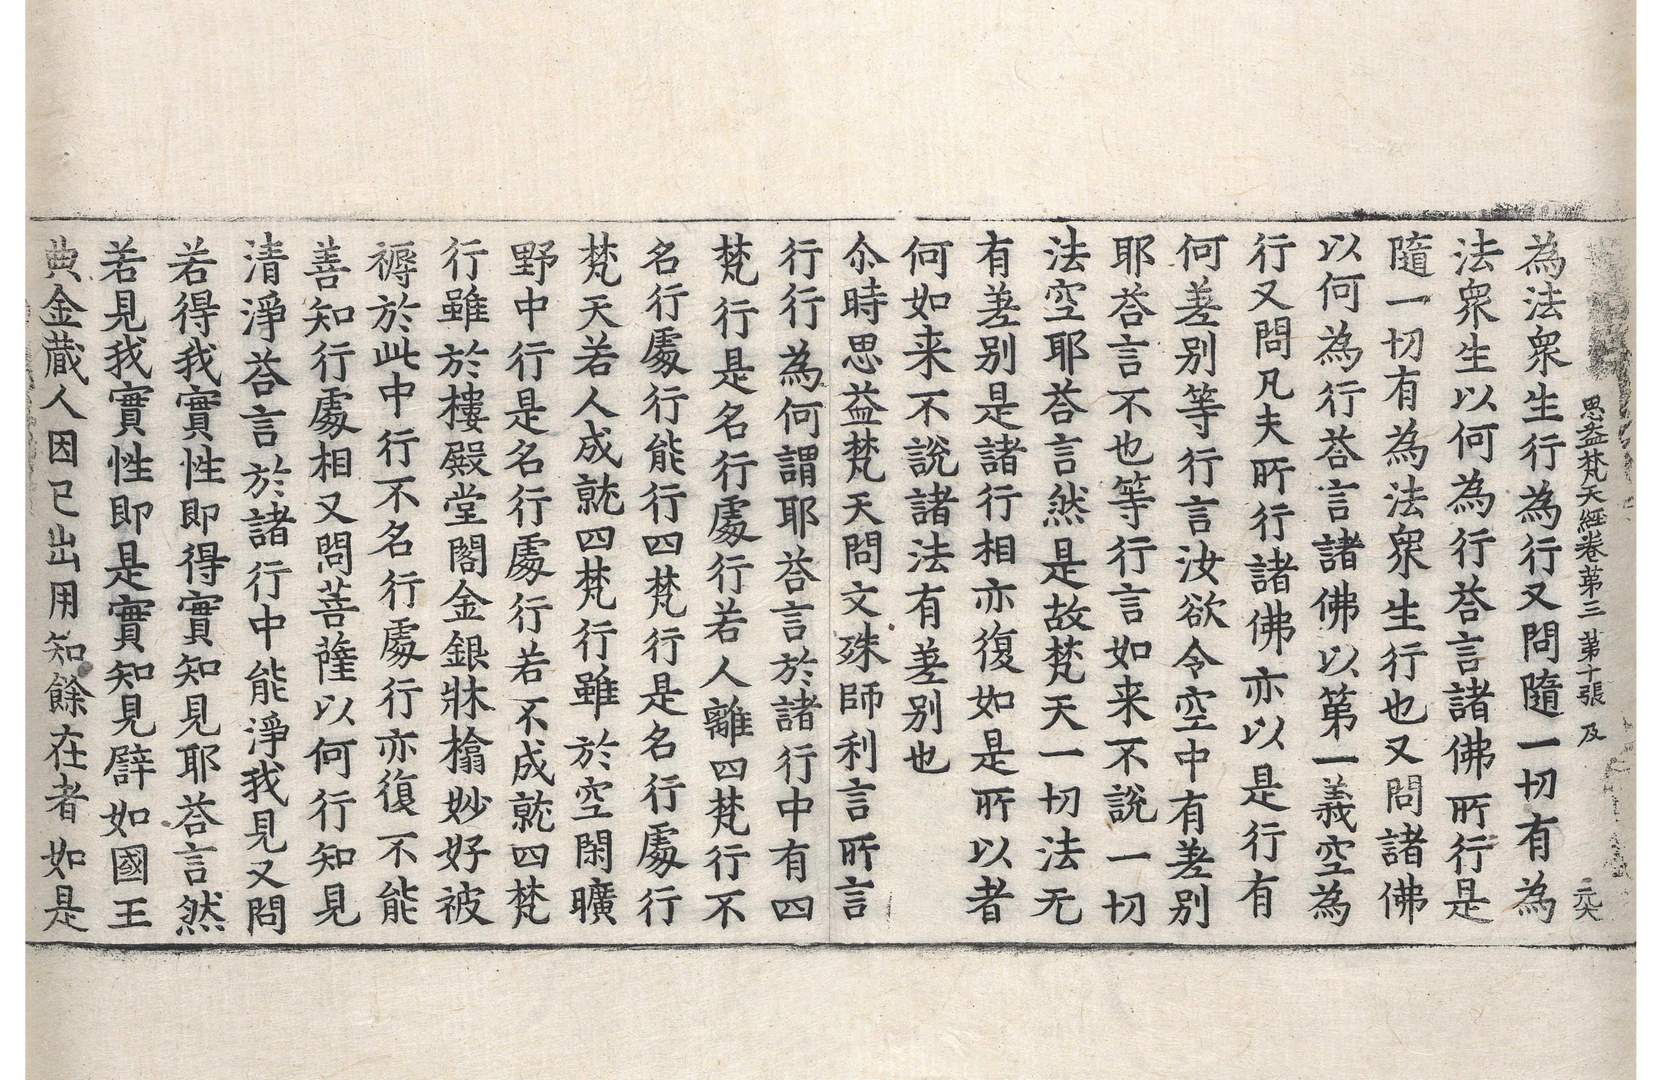 思益梵天經卷第三 第十張 及 元大
為法衆生行為行又問隨一切有為
法衆生以何為行荅言諸佛所行是
隨一切有為法衆生行也又問諸佛
以何為行荅言諸佛以第一義空為
行又問凡夫所行諸佛亦以是行有
何差别等行言汝欲令空中有差别
耶荅言不也等行言如来不說一切
法空耶荅言然是故梵天一切法无
有差别是諸行相亦復如是所以者
何如来不說諸法有差别也
尒時思益梵天問文殊師利言所言
行行為何謂耶荅言於諸行中有四
梵行是名行處行若人離四梵行不
名行處行能行四梵行是名行處行
梵天若人成就四梵行雖於空閑曠
野中行是名行處行若不成就四梵
行雖於樓殿堂閣金銀牀榻妙好被
褥於此中行不名行處行亦復不能
善知行處相又問菩薩以何行知見
清淨荅言於諸行中能淨我見又問
若得我實性即得實知見耶荅言然
若見我實性即是實知見譬如國王
典金藏人因已出用知餘在者如是